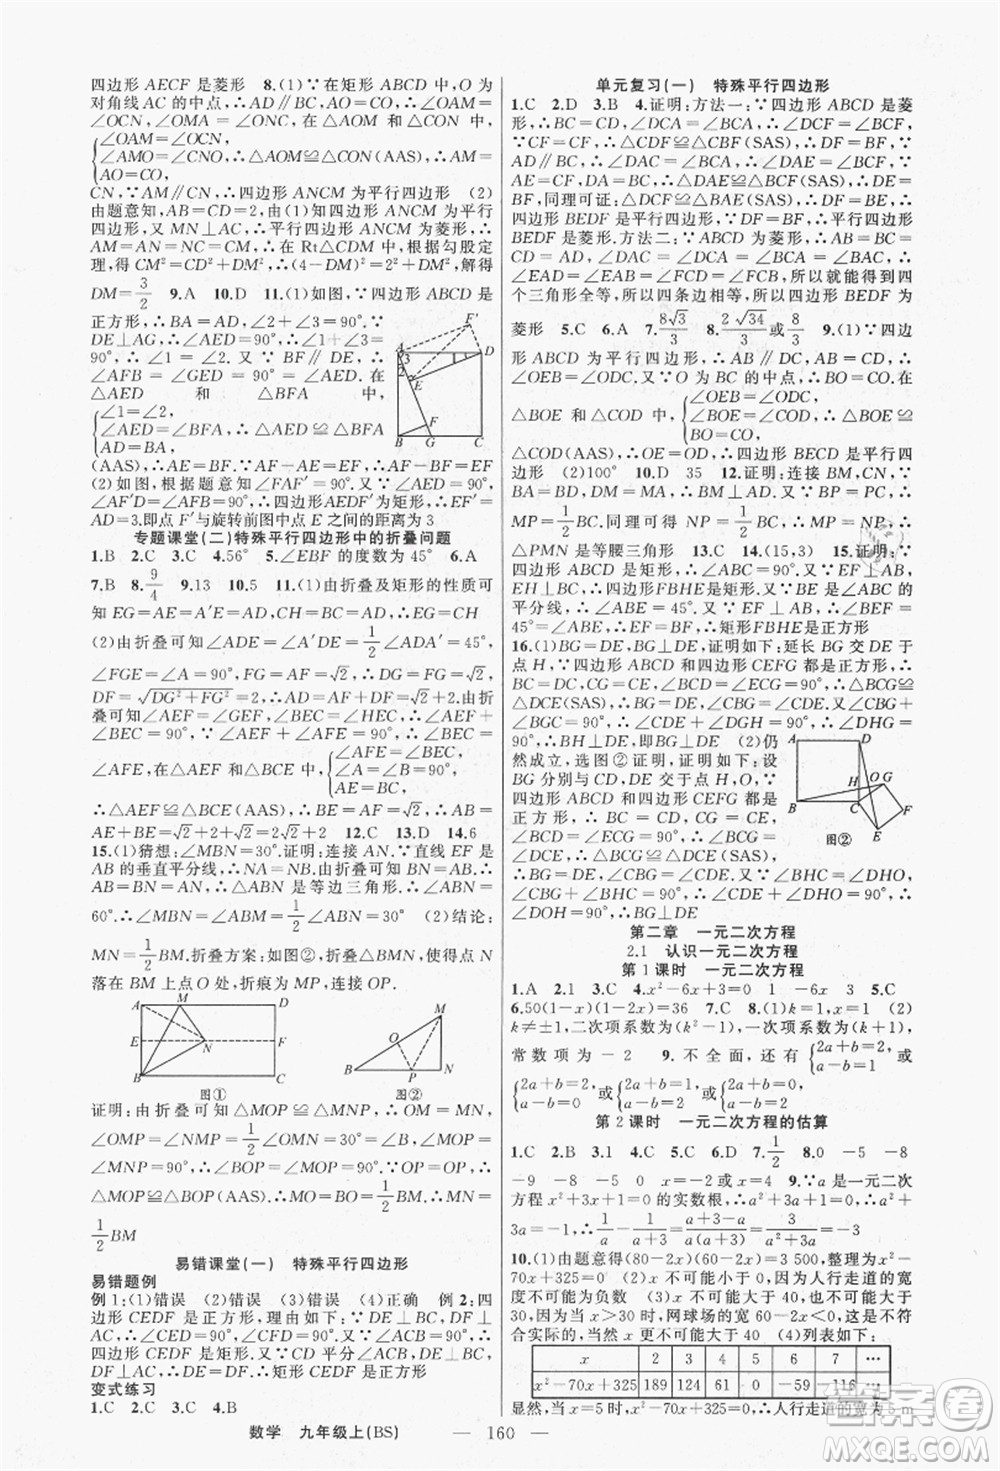 四边形 AECF 是菱形　8.(1)∵在矩形 ABCD 中,O 为
对角线 AC 的中点,∴AD∥BC,AO=CO,∴∠OAM=
∠OCN,∠OMA=∠ONC,在△AOM 和△CON 中,
{∠OAM=∠OCN,
∠AMO=∠CNO,∴△AOM≌△CON(AAS),∴AM=
AO=CO,
CN,∵AM∥CN,∴四边形 ANCM 为平行四边形　(2)
由题意知,AB=CD=2,由(1)知四边形 ANCM 为平行
四边形,又 MN⊥AC,∴平行四边形 ANCM 为菱形,∴
AM=CM=4-DM,∴在 Rt△CDM 中,根据勾股定
理,得 CM²=CD²+DM²,∴(4-DM)²=2²+DM²,解得
DM=3/2　9.A　10.D　11.(1)如图,∵四边形 ABCD 是
正方形,∴BA=AD,∠2+∠3=90°.∵
DE⊥AG,∴∠AED=90°,∴∠1+∠3=
90°,∴∠1=∠2.又∵BF∥DE,∴
∠AFB=∠GED=90°=∠AED,在
△AED 和△BFA 中,
{∠1=∠2,
∠AED=∠BFA,∴△AED≌△BFA
AD=BA,
(AAS),∴AE=BF,∵AF-AE=EF,∴AF-BF=EF
(2)如图,由题意知∠FAF′=90°,DE=AF′=AF,∵
∠AF′D=∠AFB=90°,∴四边形 AEDF′为矩形,∴EF′=
AD=3.即点 F′与旋转前图中点 E 之间的距离为 3
专题课堂(二)特殊平行四边形中的折叠问题
1.B　2.C　3.C　4.56°　5.∠EBF 的度数为45°　6.A
7.B　8.9/4　9.13　10.5　11.(1)由折叠及矩形的性质可
知 EG=AE=A′E=AD,CH=BC=AD,∴EG=CH
(2)由折叠可知∠ADE=∠A′DE=1/2∠ADA′=45°,
∠FGE=∠A=90°,FG=AF=√2,∴DG=FG=√2,
DF=√DG²+FG²=2,∴AD=AF+DF=√2+2.由折
叠可知∠AEF=∠GEF,∠BEC=∠HEC,∴∠AEF+
∠BEC=90°,∵∠AEF+∠AFE=90°,∴∠BEC=
∠AFE,在△AEF 和△BCE 中,{∠AFE=∠BEC,
∠A=∠B=90°,
AE=BC,
∴△AEF≌△BCE(AAS),∴AF=BE=√2,∴AB=
AE+BE=√2+2+√2=2√2+2　12.C　13.D　14.6
15.(1)猜想:∠MBN=30°.证明:连接 AN.∵直线 EF 是
AB 的垂直平分线,∴NA=NB.由折叠可知,BN=AB,
∴AB=BN=AN,∴△ABN 是等边三角形,∴∠ABN=
60°.∴∠MBN=∠ABM=1/2∠ABN=30°　(2)结论:
MN=1/2BM.折叠方案:如图②,折叠△BMN,使得点 N
落在 BM 上点 O 处,折痕为 MP,连接 OP.
图①　图②
证明:由折叠可知△MOP≌△MNP,∴OM=MN,
∠OMP=∠NMP=1/2∠OMN=30°=∠B,∠MOP=
∠MNP=90°,∴∠BOP=∠MOP=90°,∵OP=OP,∴
△MOP≌△BOP(AAS),∴MO=BO=1/2BM,∴MN=
1/2BM
易错课堂(一)　特殊平行四边形
易错题例
例 1:(1)错误　(2)错误　(3)错误　(4)正确　例 2:四
边形 CEDF 是正方形,理由如下:∵DE⊥BC,DF⊥AC,
∴∠CED=90°,∠CFD=90°.又∵∠ACB=90°,∴四边
形 CEDF 是矩形.又∵CD 平分∠ACB,DE⊥BC,
DF⊥AC,∴DE=DF,∴矩形 CEDF 是正方形
变式练习
1.C　2.C　3.C　4.B
单元复习(一)　特殊平行四边形
1.C　2.D　3.B　4.证明:方法一:∵四边形 ABCD 是菱
形,∴BC=CD,AD∥BC,∴∠DCF=∠BCF,
∵CF=CF,∴△CDF≌△CBF(SAS),∴DF=BF,∵
AD∥BC,∴∠DAE=∠BCF,∵AE=CF,DA=
AB=BC,∴△DAE≌△BCF(SAS),∴DE=
BF,同理可证:△DCF≌△BAE(SAS),∴DF=BE,∴
四边形 BEDF 是平行四边形,∵DF=BF,∴平行四边形
BEDF 是菱形.方法二:∵四边形 ABCD 是菱形,∴
∠EAD=∠EAB=∠FCD=∠FCB,所以就能证明四
个三角形全等,所以四条边相等,所以四边形 BEDF 为
菱形　5.C　6.A　7.8√3/3　8.2√34/3或8/3　9.(1)∵四边
形 ABCD 为平行四边形,∴AB∥DC,AB=CD,∴
∠OEB=∠CDO.又∵O 为 BC 的中点,∴BO=CO,在
△BOE 和△COD 中,{∠OEB=∠ODC,
∠BOE=∠COD,∴△BOE≌
BO=CO,
△COD(AAS);∴OE=OD,∴四边形 BECD 是平行四
边形　(2)100°　10.D　35　12.证明:连接 BM,CN,∵
MP=1/2BC.同理可得 NP=1/2BC,∴MP=NP,∴
△PMN 是等腰三角形　13.C　14.(15,3)　15.证明:∵
平分线,∴∠ABE=45°.又∵EF⊥AB,∴∠BEF=
45°=∠EBF,∴EF=BF,∴矩形 FBHE 是正方形
16.(1)BG=DE,BG⊥DE,证明如下:延长 BG 交 DE 于
点 H,∵四边形 ABCD 和四边形 CEFG 都是正方形,∴
BC=DC,CG=CE,∠BCG=∠DCE=90°,∴△BCG≌
△DCE(SAS),∴BG=DE,∠CBG=∠CDE,∵∠CBG+
∠BGC=90°,∴∠CDE+∠DGH=90°,∴∠DHG=
90°,∴BH⊥DE,即BG⊥DE　(2)仍
然成立,选图②证明,证明如下:设
BG 分别与 CD,DE 交于点 H,O,∵
四边形 ABCD 和四边形 CEFG 都是
正方形,∴BC=DC,CG=CE,
∠BCD=∠ECG=90°,∴∠BCG=
∠DCE,∴△BCG≌△DCE(SAS),∴BG=DE,
∠CBG=∠CDE,又∵∠BHC=∠DHO,∠CBG+
∠BHC=90°,∴∠CDE+∠DHO=90°,∴
∠DOH=90°,∴BG⊥DE
图②
第二章　一元二次方程
2.1　认识一元二次方程
第 1 课时　一元二次方程
1.A　2.1　3.C　4.x²-6x+3=0　1　-6　3　5.C
6.50(1-x)(1-2x)=36　7.C　8.(1)k=1,x=1　(2)
k≠±1,二次项系数为(k²-1),一次项系数为(k+1),
常数项为-2　9.不全面,还有{2a+b=2,
a-b=1 或
{2a+b=2,
a-b=0 或{2a+b=1,
a-b=2 或{2a+b=0,
a-b=2
第 2 课时　一元二次方程的估算
1.C　2.B　3.1　4.C　5.C　6.D　7.1/2　8.0　-5　-8
-9　-8　-5　0　x=-2　x=4　9.∵a是一元二次
方程 x²+3x+1=0 的实数根,∴a²+3a+1=0,∴a²+
3a=-1,∴(a³+1)/a
10.(1)由题意得(80-2x)(60-2x)=3 500,整理为x²-
70x+325=0　(2)x 不可能小于 0,因为人行走道的宽
度不可能为负数　(3)x 不可能大于 40,也不可能大于
30,因为当 x>30 时,网球场的宽 60-2x<0,这是不符
合实际的,当然 x 更不可能大于 40　(4)列表如下:
x　2　3　4　5　6　7　…
x²-70x+325　189　124　61　0　-59　-116　…
显然,当 x=5 时,x²-70x+325=0,∴人行走道的宽为 5 m
数学　九年级上(BS)　— 160 —
答案圈
MXQE.COM